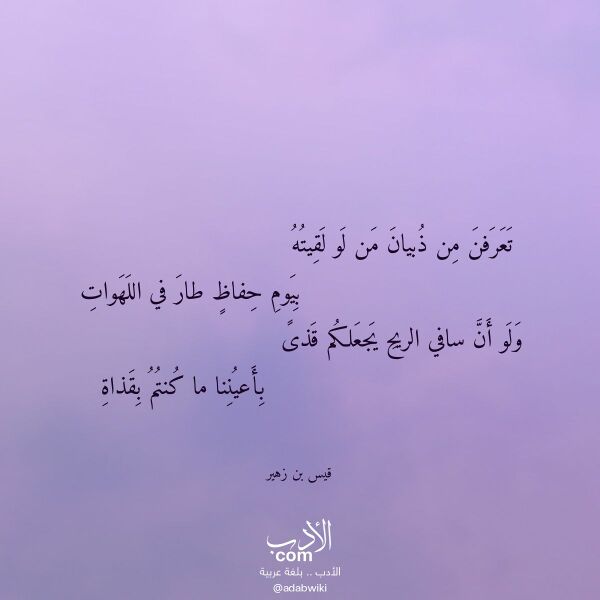 تَعَرَفنَ مِن ذُبيانَ مَن لَو لَقيتُهُ
بِيَومِ حِفاظٍ طارَ في اللَهَواتِ
وَلَو أَنَّ سافي الريحِ يَجعَلكُم قَذىً
بِأَعيُنِنا ما كُنتُمُ بِقَذاةِ
قيس بن زهير
الأدب
.com
الأدب .. بلغة عربية
@adabwiki